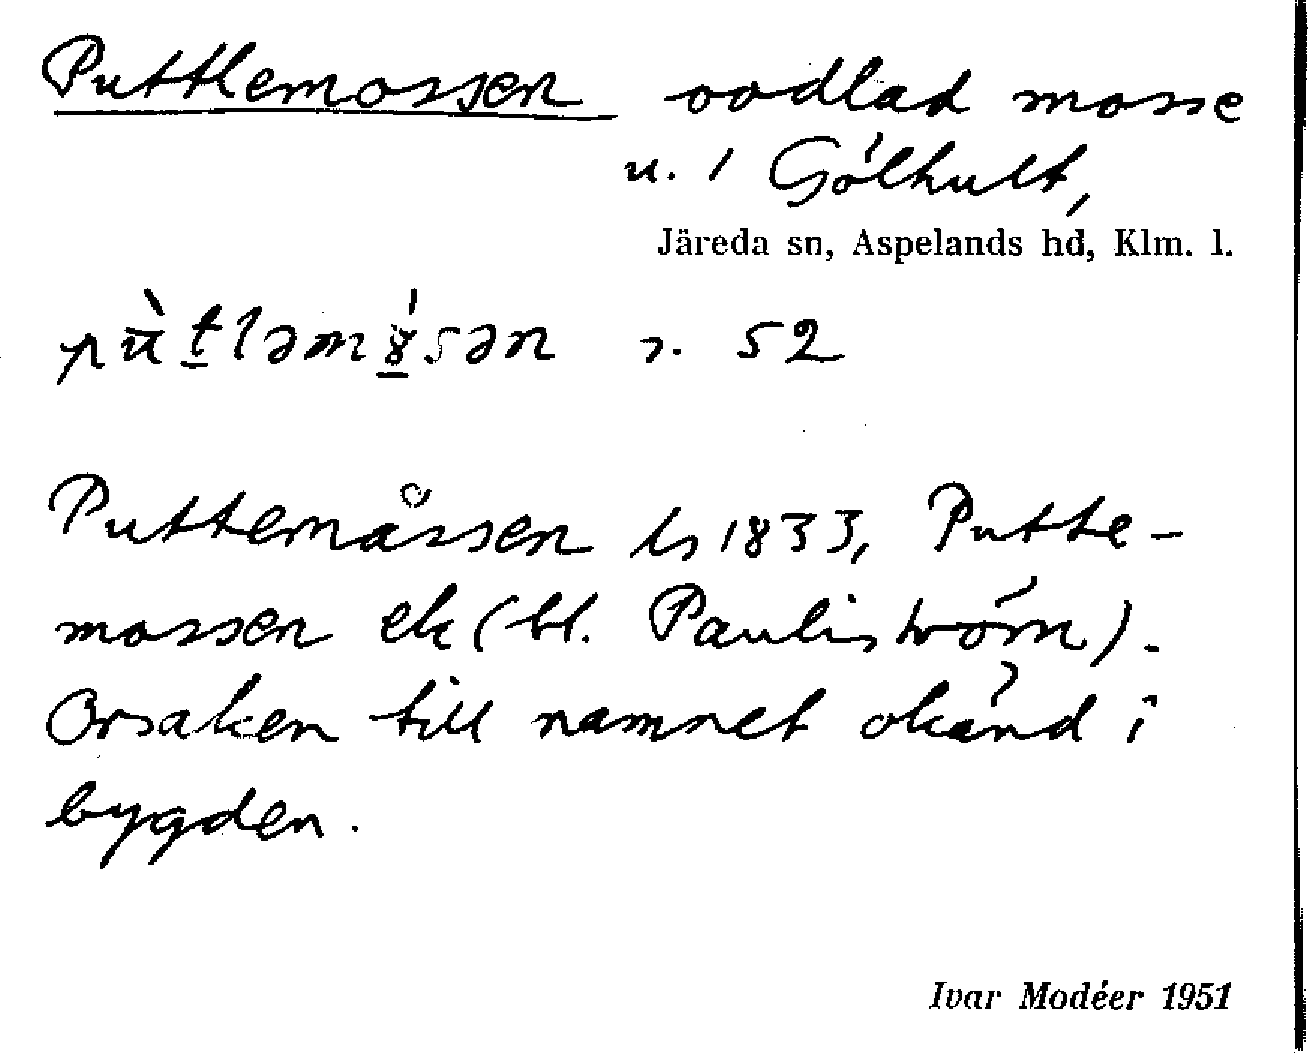 Puttlemossen oodlad mosse
u. 1 Gölhult,
Järeda sn, Aspelands hd, Klm. l.
s. 52
Puttemåssen ls 1833, Putte-
mossen ek (bl. Pauliström).
Orsaken till namnet okänd i
bygden.
Ivar Modéer 1951